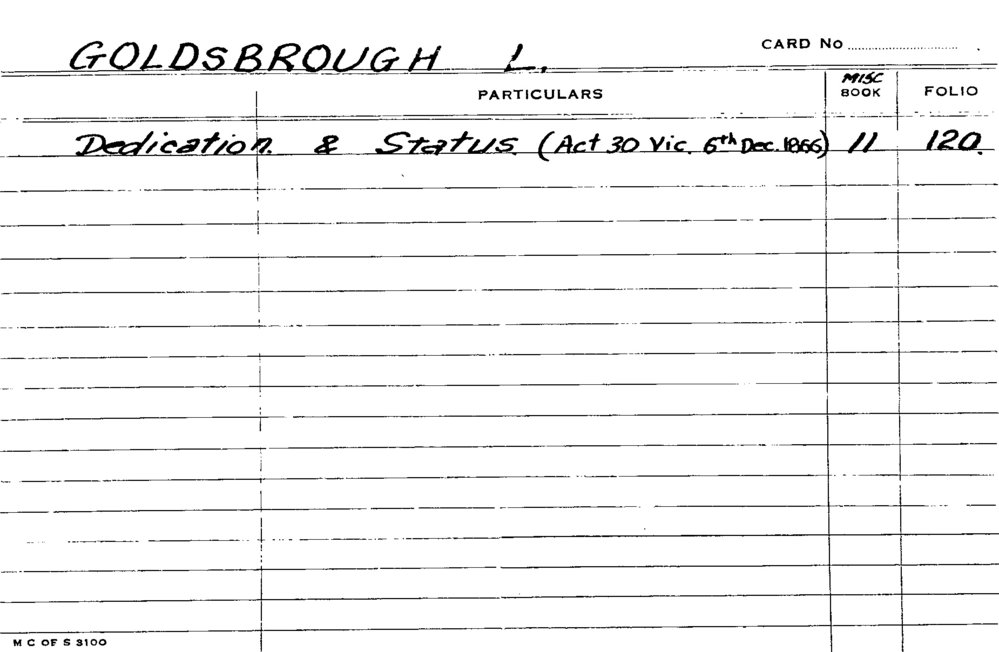 GOLDSBROUGH L.
CARD No
PARTICULARS
MISC BOOK
FOLIO
Dedication. & Status. (Act 30 Vic. 6th Dec. 1866) 11 120.
M C OF S 3100